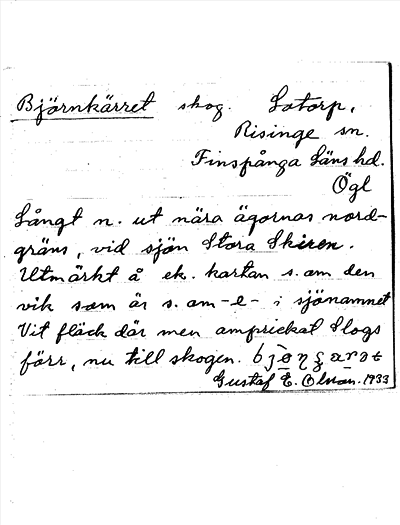 Björnkärret skog. Sotorp,
Risinge sn.
Finspånga Läns hd.
Ögl
Långt n. ut nära ägornas nord-
gräns, vid sjön Stora Skiren.
Utmärkt å ek. kartan s. om den
vik som är s. om -e- i sjönamnet
Vit fläck där men omprickat Slogs
förr, nu till skogen.
Gustaf E. Olsson. 1933